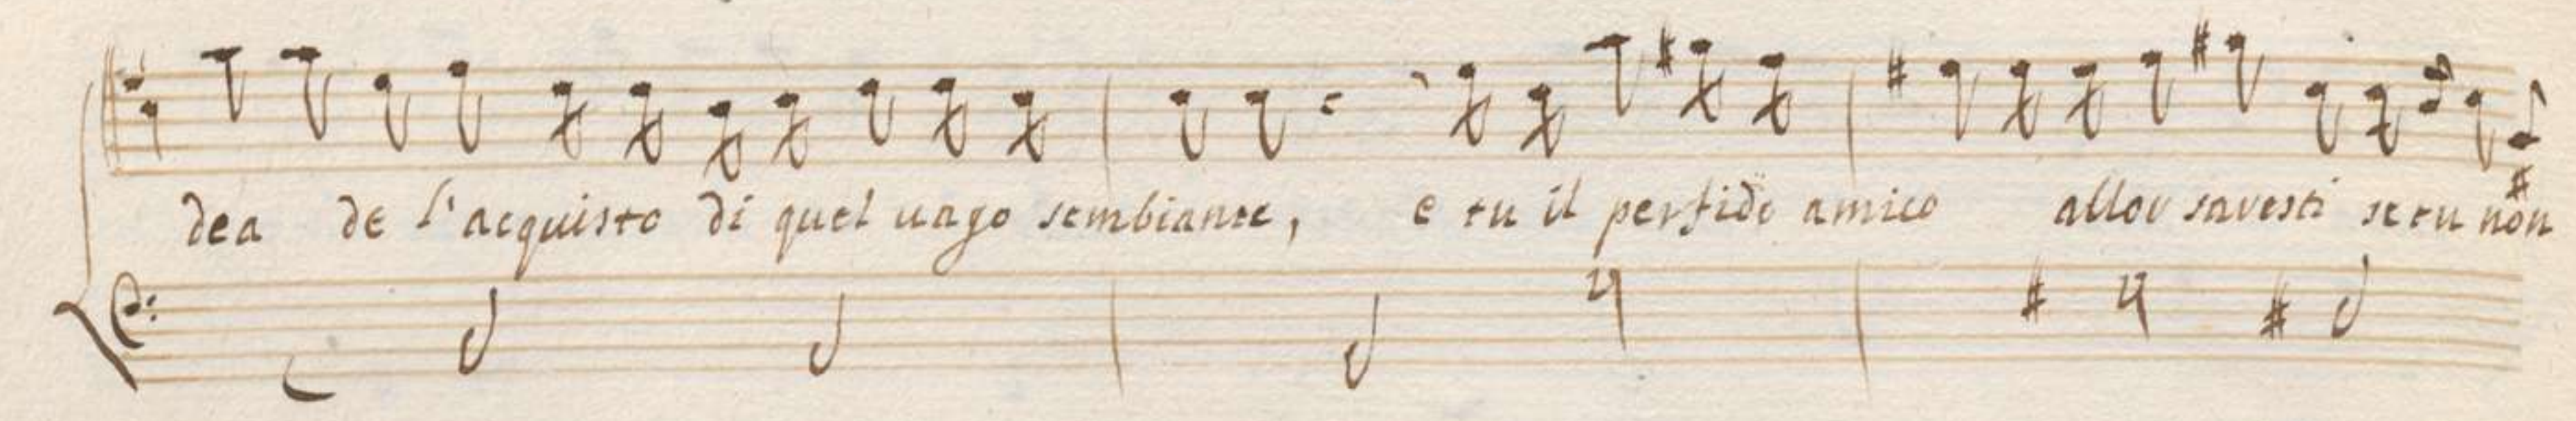 dea de l'acquisto di quel uago sembiante, e tu il perfido amico allor savesti se tu non